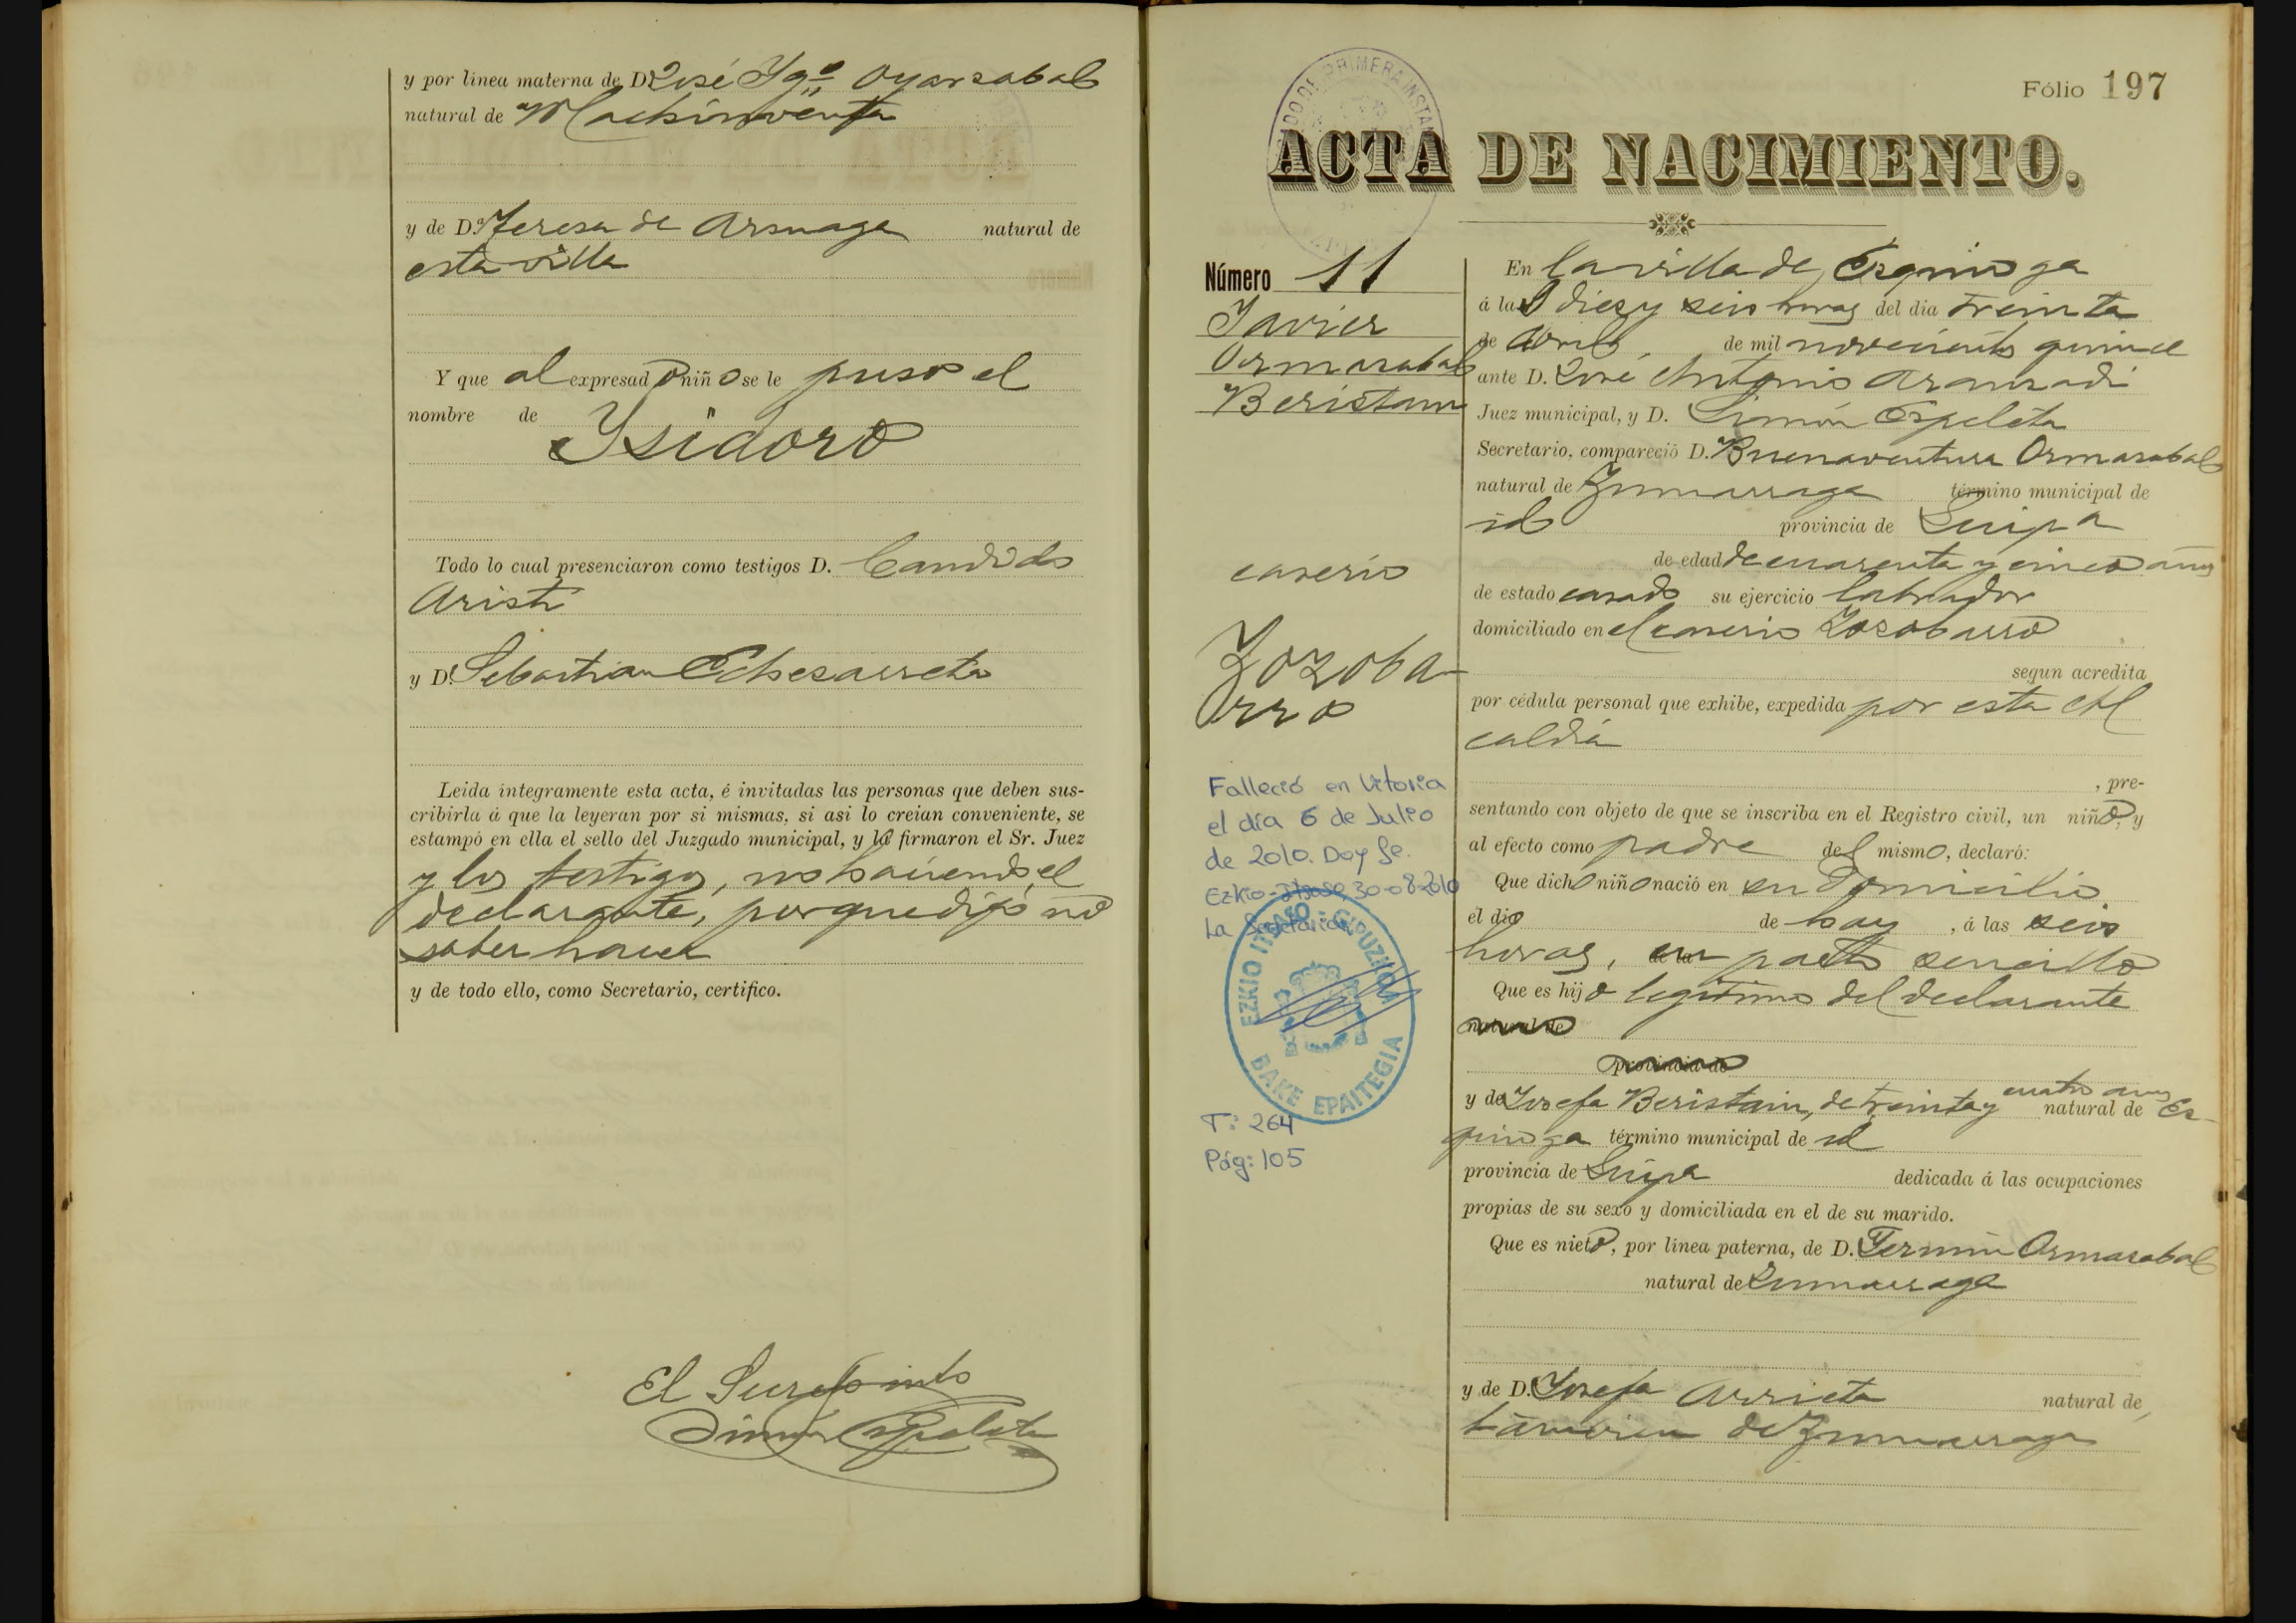 y por línea materna de D. José Ygº Oyarzabal
natural de Machinventa
y de D.ª Teresa de Arsuaga natural de
esta villa
Y que al expresado niño se le puso el
nombre de
Ysidoro
Todo lo cual presenciaron como testigos D. Candido
Aristi
y D. Sebastian Echezarreta
Leida íntegramente esta acta, é invitadas las personas que deben sus-
cribirla á que la leyeran por si mismas, si asi lo creian conveniente, se
estampó en ella el sello del Juzgado municipal, y la firmaron el Sr. Juez
y los testigos, no haciendo el
declarante, porque dijo no
saber hacer
y de todo ello, como Secretario, certifico.
El
Simón Espeleta
Fólio 197
JUZGADO DE PRIMERA INSTA
ACTA DE NACIMIENTO.
Número 11
Javier
Ormazabal
Beristain
caserio
Zozoba-
rro
Falleció en Vitoria
el día 6 de Julio
de 2010. Doy fe.
Ezkio-Itsaso, 30-08-2010
La Secretaria
EZKIO ITSASO - GIPUZKOA
BAKE EPAITEGIA
T: 264
Pág: 105
En la villa de Ezquioga
á las diez y seis horas del dia treinta
de Abril de mil novecientos quince
ante D. José Antonio Aranzadi
Juez municipal, y D. Simón Espeleta
Secretario, compareció D. Buenaventura Ormazabal
natural de Zumarraga término municipal de
id provincia de Guipa
de edad de cuarenta y cinco años
de estado casado su ejercicio labrador
domiciliado en el caserio Zozobarro
segun acredita
por cédula personal que exhibe, expedida por esta Al
caldia
, pre-
sentando con objeto de que se inscriba en el Registro civil, un niño, y
al efecto como padre del mismo, declaró:
Que dicho niño nació en su domicilio
el dia de hoy , á las seis
horas, en parto sencillo
Que es hijo legítimo del declarante
natural de
provincia de
y de Josefa Beristain, de treinta y cuatro años natural de Ez-
quioga término municipal de id
provincia de Guipa dedicada á las ocupaciones
propias de su sexo y domiciliada en el de su marido.
Que es nieto, por línea paterna, de D. Fermin Ormazabal
natural de Zumarraga
y de D. Josefa Arrieta natural de
tambien de Zumarraga